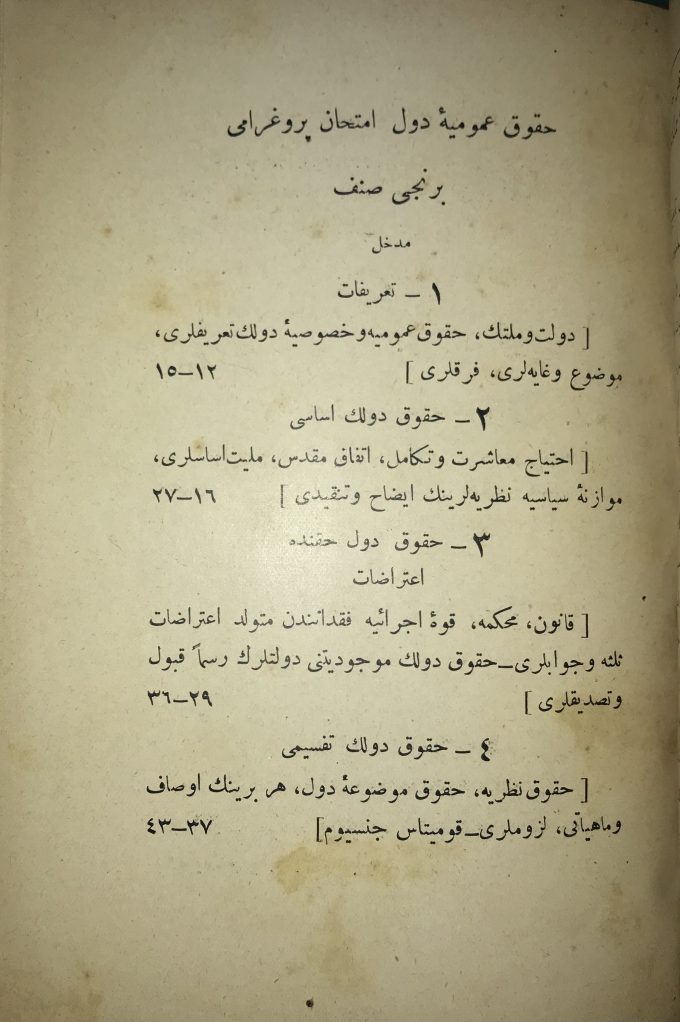 حقوق عموميۀ دول امتحان پروغرامی
برنجی صنف
مدخل
١ – تعریفات
[ دولت وملتك، حقوق عمومیه وخصوصیۀ دولك تعریفلری،
موضوع وغایه‌لری، فرقلری ] ١٢–١٥
٢ – حقوق دولك اساسی
[ احتیاج معاشرت وتكامل، اتفاق مقدس، ملیت اساسلری،
موازنۀ سیاسیه نظریه‌لرینك ایضاح وتنقیدی ] ١٦–٢٧
٣ – حقوق دول حقنده
اعتراضات
[ قانون، محكمه، قوۀ اجرائیه فقدانندن متولد اعتراضات
ثلثه وجوابلری – حقوق دولك موجودیتنی دولتلرك رسماً قبول
وتصدیقلری ] ٢٩–٣٦
٤ – حقوق دولك تقسیمی
[ حقوق نظریه، حقوق موضوعۀ دول، هر برینك اوصاف
وماهیاتی، لزوملری – قومیتاس جنسیوم ] ٣٧–٤٣